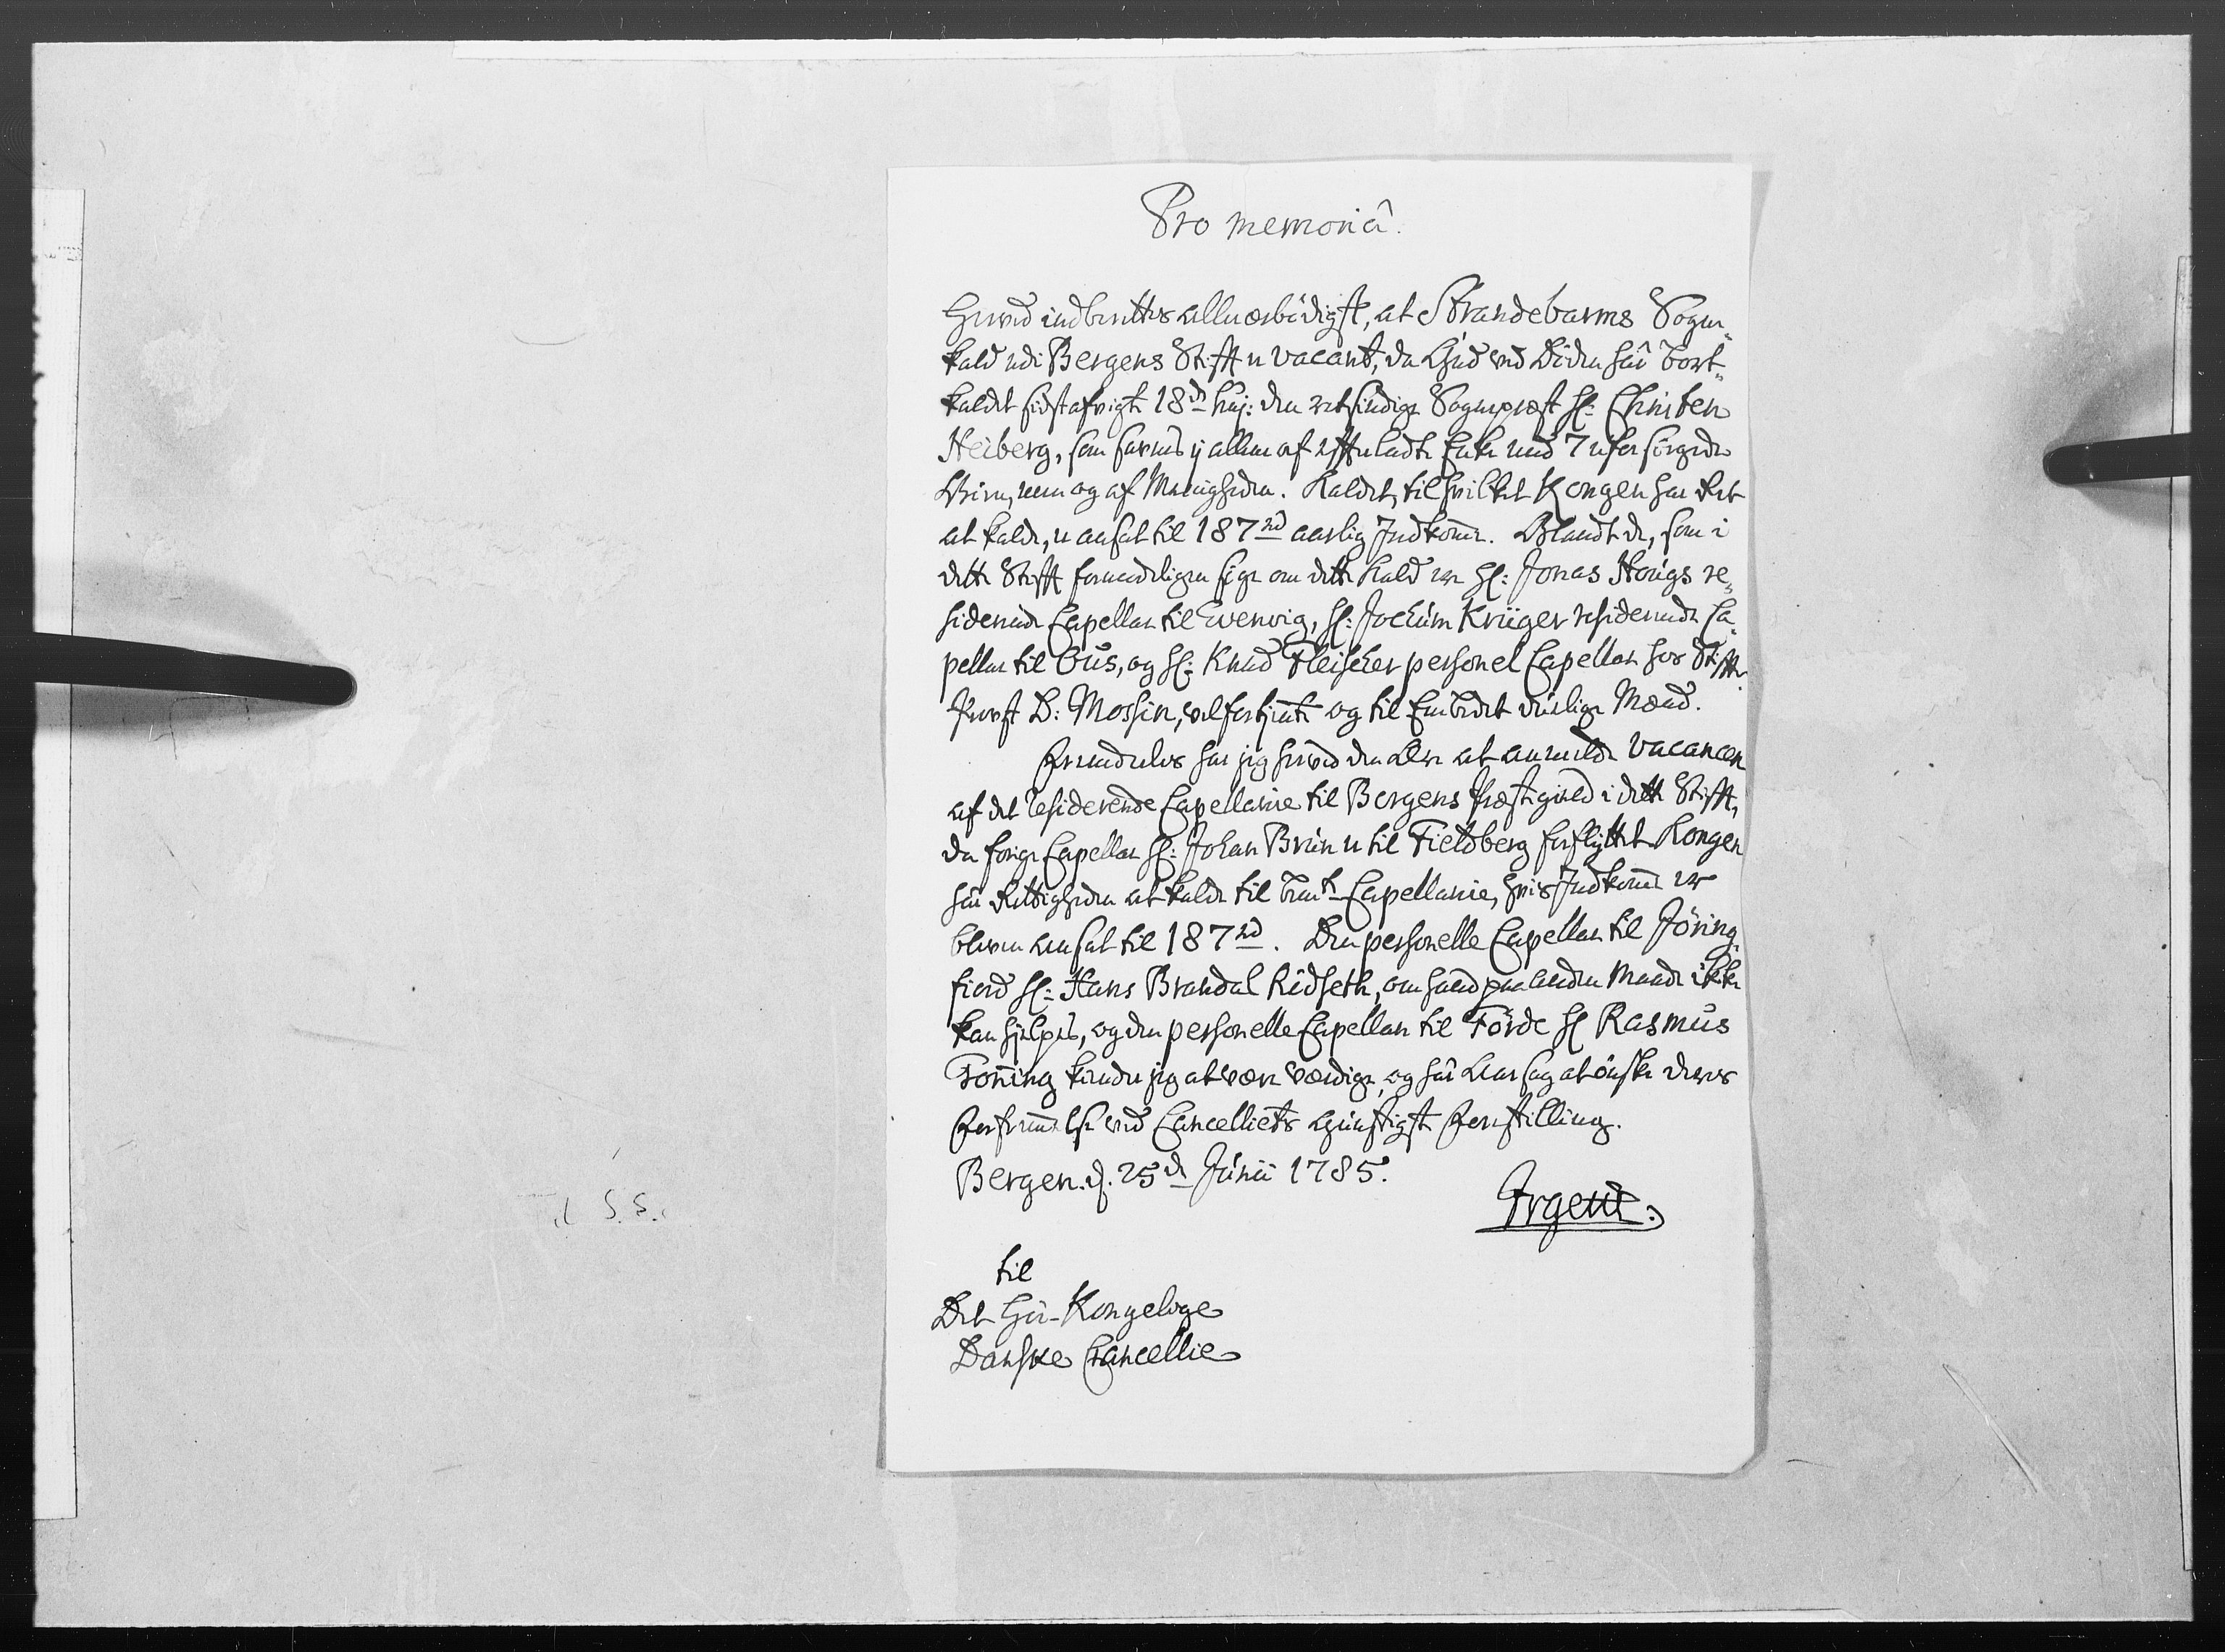 Pro memoriâ.
Herved indberettes allerærbödigst, at Strandebarms Sogne„
kald udi Bergens Stift er vacant, da Gud ved Döden har bort„
kaldet sidstafvigte 18d huj: den retsindige Sognepræst Hr: Christen
Heiberg, som savnes ej allene af efterladte Enke med 7 uforsörgede
Börn, men og af Menigheden. Kaldet, til hvilket Kongen har Ret
at kalde, er ansat til 187 rd aarlig Indkomme. Blandt de, som i
dette Stift formodeligen söge om dette Kald ere Hr: Jonas Houg's re„
siderende Capellan til Evenvig, Hr: Jochum Krüger residerende Ca„
pellan til Ous, og Hr: Knud Fleischer personel Capellan hos Stifts„
Provst D: Mossin, velfortjente og til Embedet duelige Mænd.
Fremdeles har jeg herved den Ære at anmelde Vacancen
af det residerende Capellanie til Borgens Præstegield i dette Stift,
da forige Capellan Hr: Johan Brun er til Fieldberg forflyttet. Kongen
har Rettigheden at kalde til bemte Capellanie, hvis Indkomme er
bleven ansat til 187 rd. Den personelle Capellan til Jöring„
fiord Hr: Hans Brandal Rödseth, om hand paa anden Maade ikke
kan hjelpes, og den personelle Capellan til Förde Hr Rasmus
Tonning kiender jeg at være værdige, og har Aarsag at önske deres
Forfremmelse ved Cancelliets gunstigste Forestilling.
Bergen. d. 25d Junii 1785.
Irgens.
til
Det Höi-Kongelige
Danske Cancellie